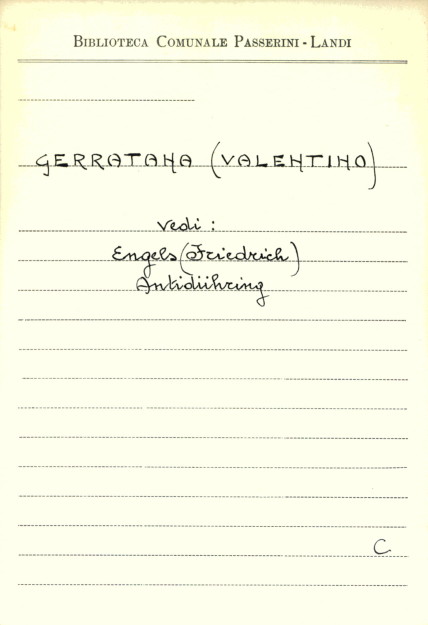 BIBLIOTECA COMUNALE PASSERINI - LANDI
GERRATANA (VALENTINO)
vedi :
Engels (Friedrich)
Antidühring
C